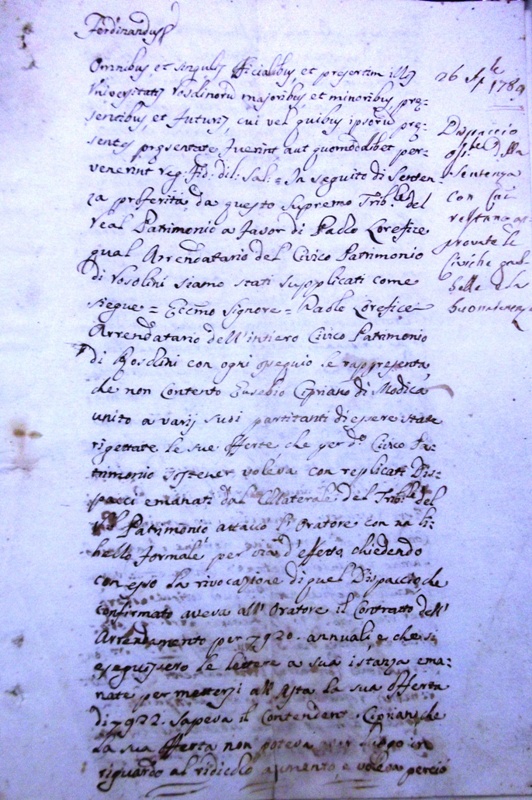 Ferdinandus
Omnibus, et singulis officialibus, et presertim
Universitatis Rosolinorum majoribus, et minoribus, pre=
sentibus, et futuris, cui vel quibus ipsorum pre=
sentes presentate fuerint, aut quomodolibet per=
venerint reg. fid. dil. Sal. = In seguito di Senten
za proferita da questo Supremo Trib.le del
real Patrimonio a favor di Paolo Lorefice
qual Arrendatario del Civico Patrimonio
di Rosolini siamo stati supplicati come
siegue = Eccmo Signore = Paolo Lorefice
Arrendatario dell'intiero Civico Patrimonio
di Rosolini con ogni ossequio le rappresenta
che non contento Eusebio Cipriano di Modica
unito a varij suoi partitanti di essere state
rigettate le sue offerte che per d.o Civico Pa=
trimonio sostener voleva con replicati Dis=
pacci emanati dal Collaterale del Trib.le del
Patrimonio attaccò l'Oratore con un li=
bello formale per via d'offerta, chiedendo
con esso la rivocazione di quel Dispaccio, che
confirmato aveva all'Oratore il Contratto dell'
Arrendamento per 7920 annuali, e che si
eseguissero le lettere a sua istanza ema=
nate per mettersi all'Asta la sua offerta
di 7922. Sapeva il Contendente Cipriano, che
la sua offerta non poteva aver luogo in
riguardo al ridicolo aumento, e voleva perciò
26 1789
Dispaccio
della
Sentenza
con cui
restano ap
provate le
Civiche gab
belle